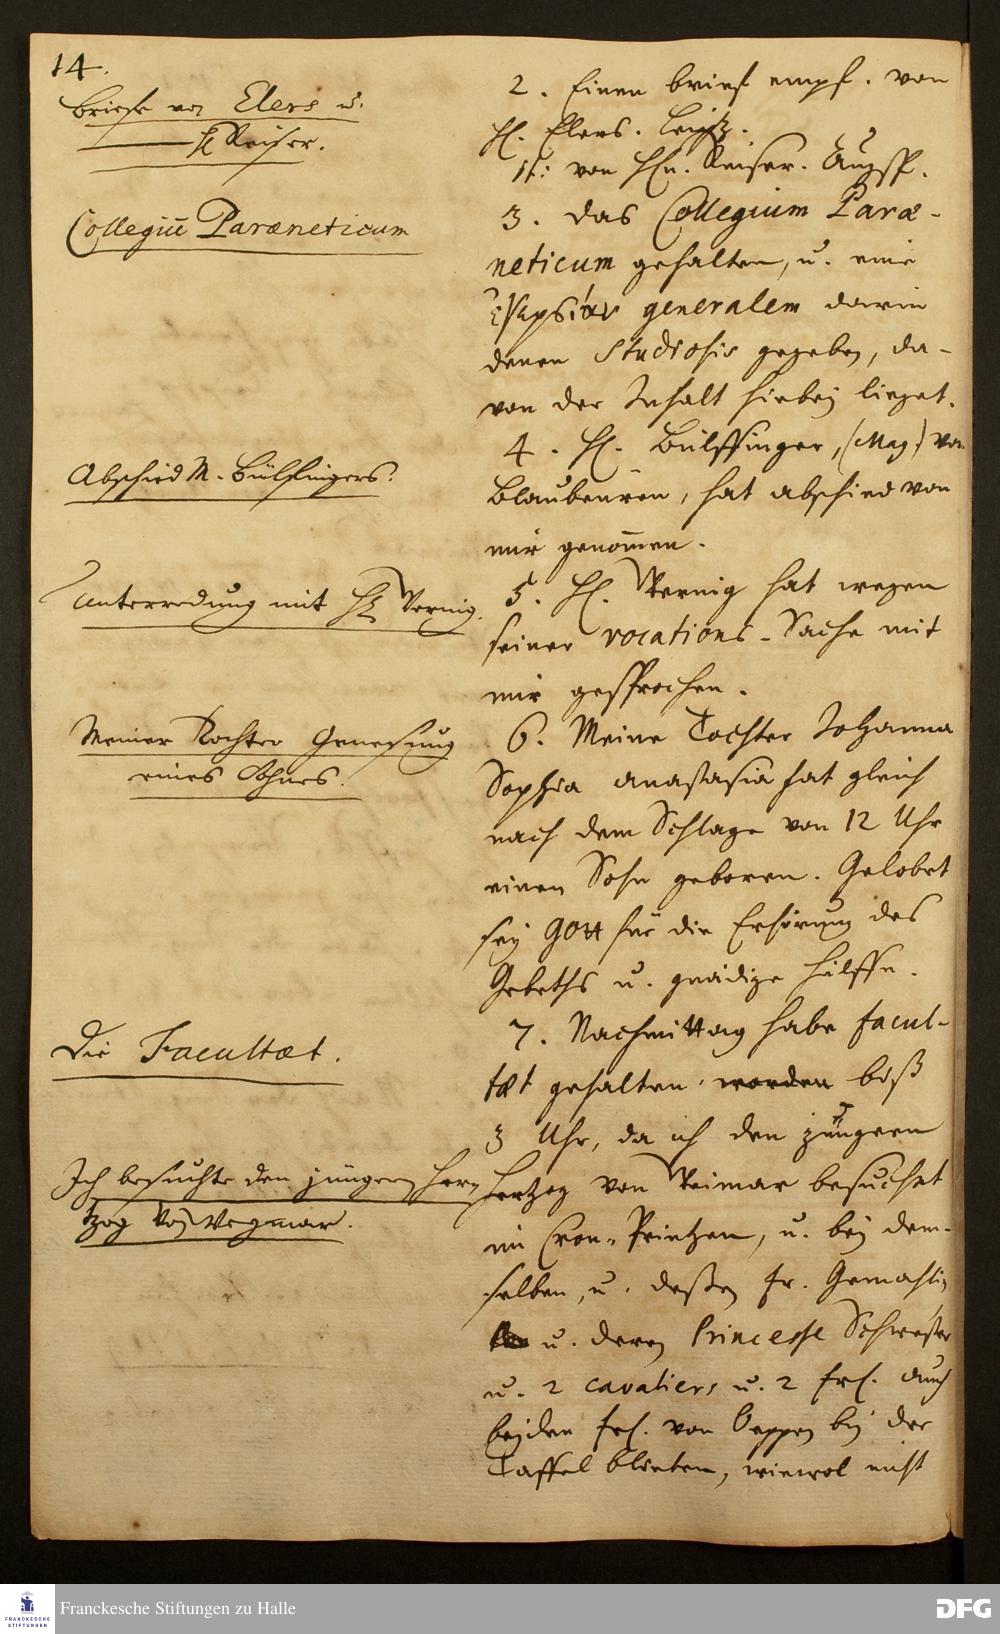 14.
Briefe von Elers u.
H. Reiser.
Collegiū Paræneticum
Abschied M. Bülfingers.
Unterredung mit H. Wernig.
Meiner Tochter Genesung
eines Sohnes.
Die Facultæt.
Ich besuchte den jüngern Her-
tzog von Weymar.
2. Einen brief empf. von
H. Elers. Leipz.
it: von Hn. Reiser. Augsp.
3. das Collegium Paræ-
neticum gehalten, u. eine
generalem darin
denen Studiosis gegeben, da-
von der Inhalt hiebey lieget.
4. H. Bülffinger, (Mag.) von
Blaubeuren, hat abschied von
mir genom̄en.
5. H. Wernig hat wegen
seiner vocations-Sache mit
mir gesprochen.
6. Meine Tochter Johanna
Sophia Anastasia hat gleich
nach dem Schlage von 12 Uhr
einen Sohn geboren. Gelobet
sey Gott für die Erhörung des
Gebeths u. gnädige hülffe.
7. Nachmittag habe facul-
tæt gehalten worden biß
3 Uhr, da ich den jüngern
Hertzog von Weimar besuchet
im Cron-Printzen, u. bey dem-
selben, u. deßen fr. Gemahlin
u. deren Princesse Schwester
u. 2 cavaliers u. 2 frl. auch
beyden frl. von Oeppen bey der
Taffel blieben, wiewol nicht
Franckesche Stiftungen zu Halle
FRANCKESCHE
STIFTUNGEN
DFG